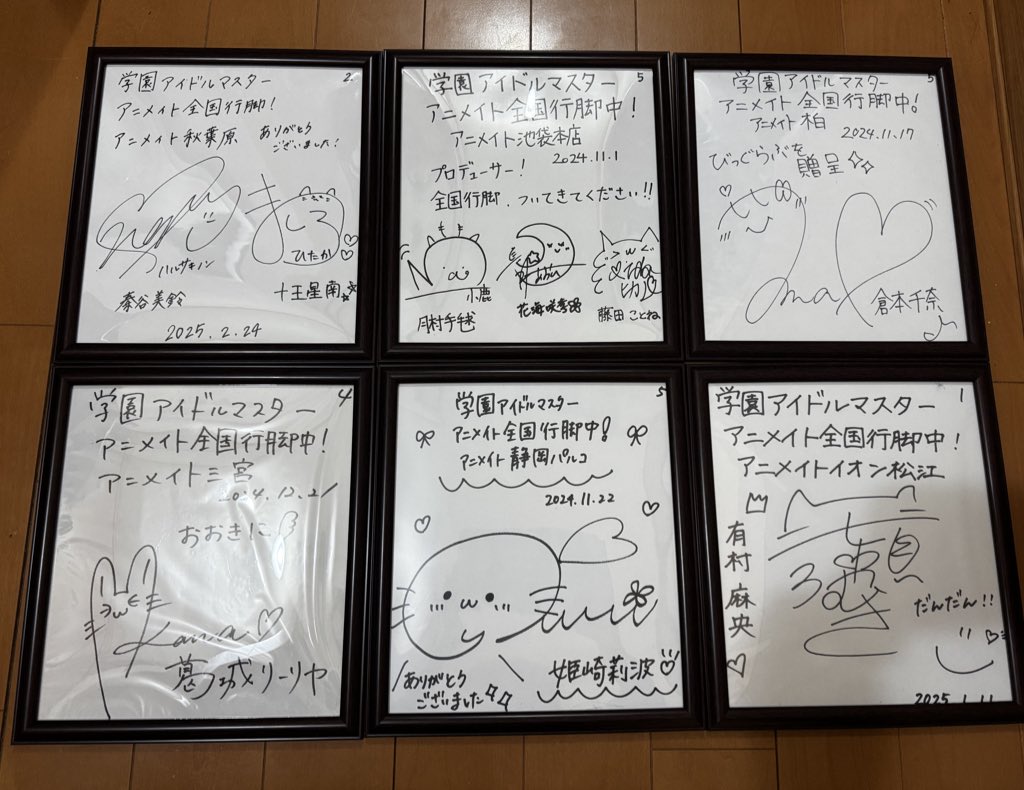 学園アイドルマスター
2
アニメイト全国行脚!
アニメイト秋葉原
ありがとう
ございました!
ましろ
ハルサキノン
ひたか
秦谷美鈴
十王星南
2025.2.24
学園アイドルマスター
5
アニメイト全国行脚中!
アニメイト池袋本店
2024.11.1
プロデューサー!
全国行脚、ついてきてください!!
小鹿
月村手毬
花海咲季
藤田ことね
学園アイドルマスター
5
アニメイト全国行脚中!
アニメイト柏
2024.11.17
びっぐらぶを
贈呈
倉本千奈
学園アイドルマスター
4
アニメイト全国行脚中!
アニメイト三宮
2024.12.21
おおきに
葛城リーリヤ
学園アイドルマスター
5
アニメイト全国行脚中!
アニメイト静岡パルコ
2024.11.22
ありがとう
ございました
姫崎莉波
学園アイドルマスター
1
アニメイト全国行脚中!
アニメイトイオン松江
有村麻央
だんだん!!
2025.1.11